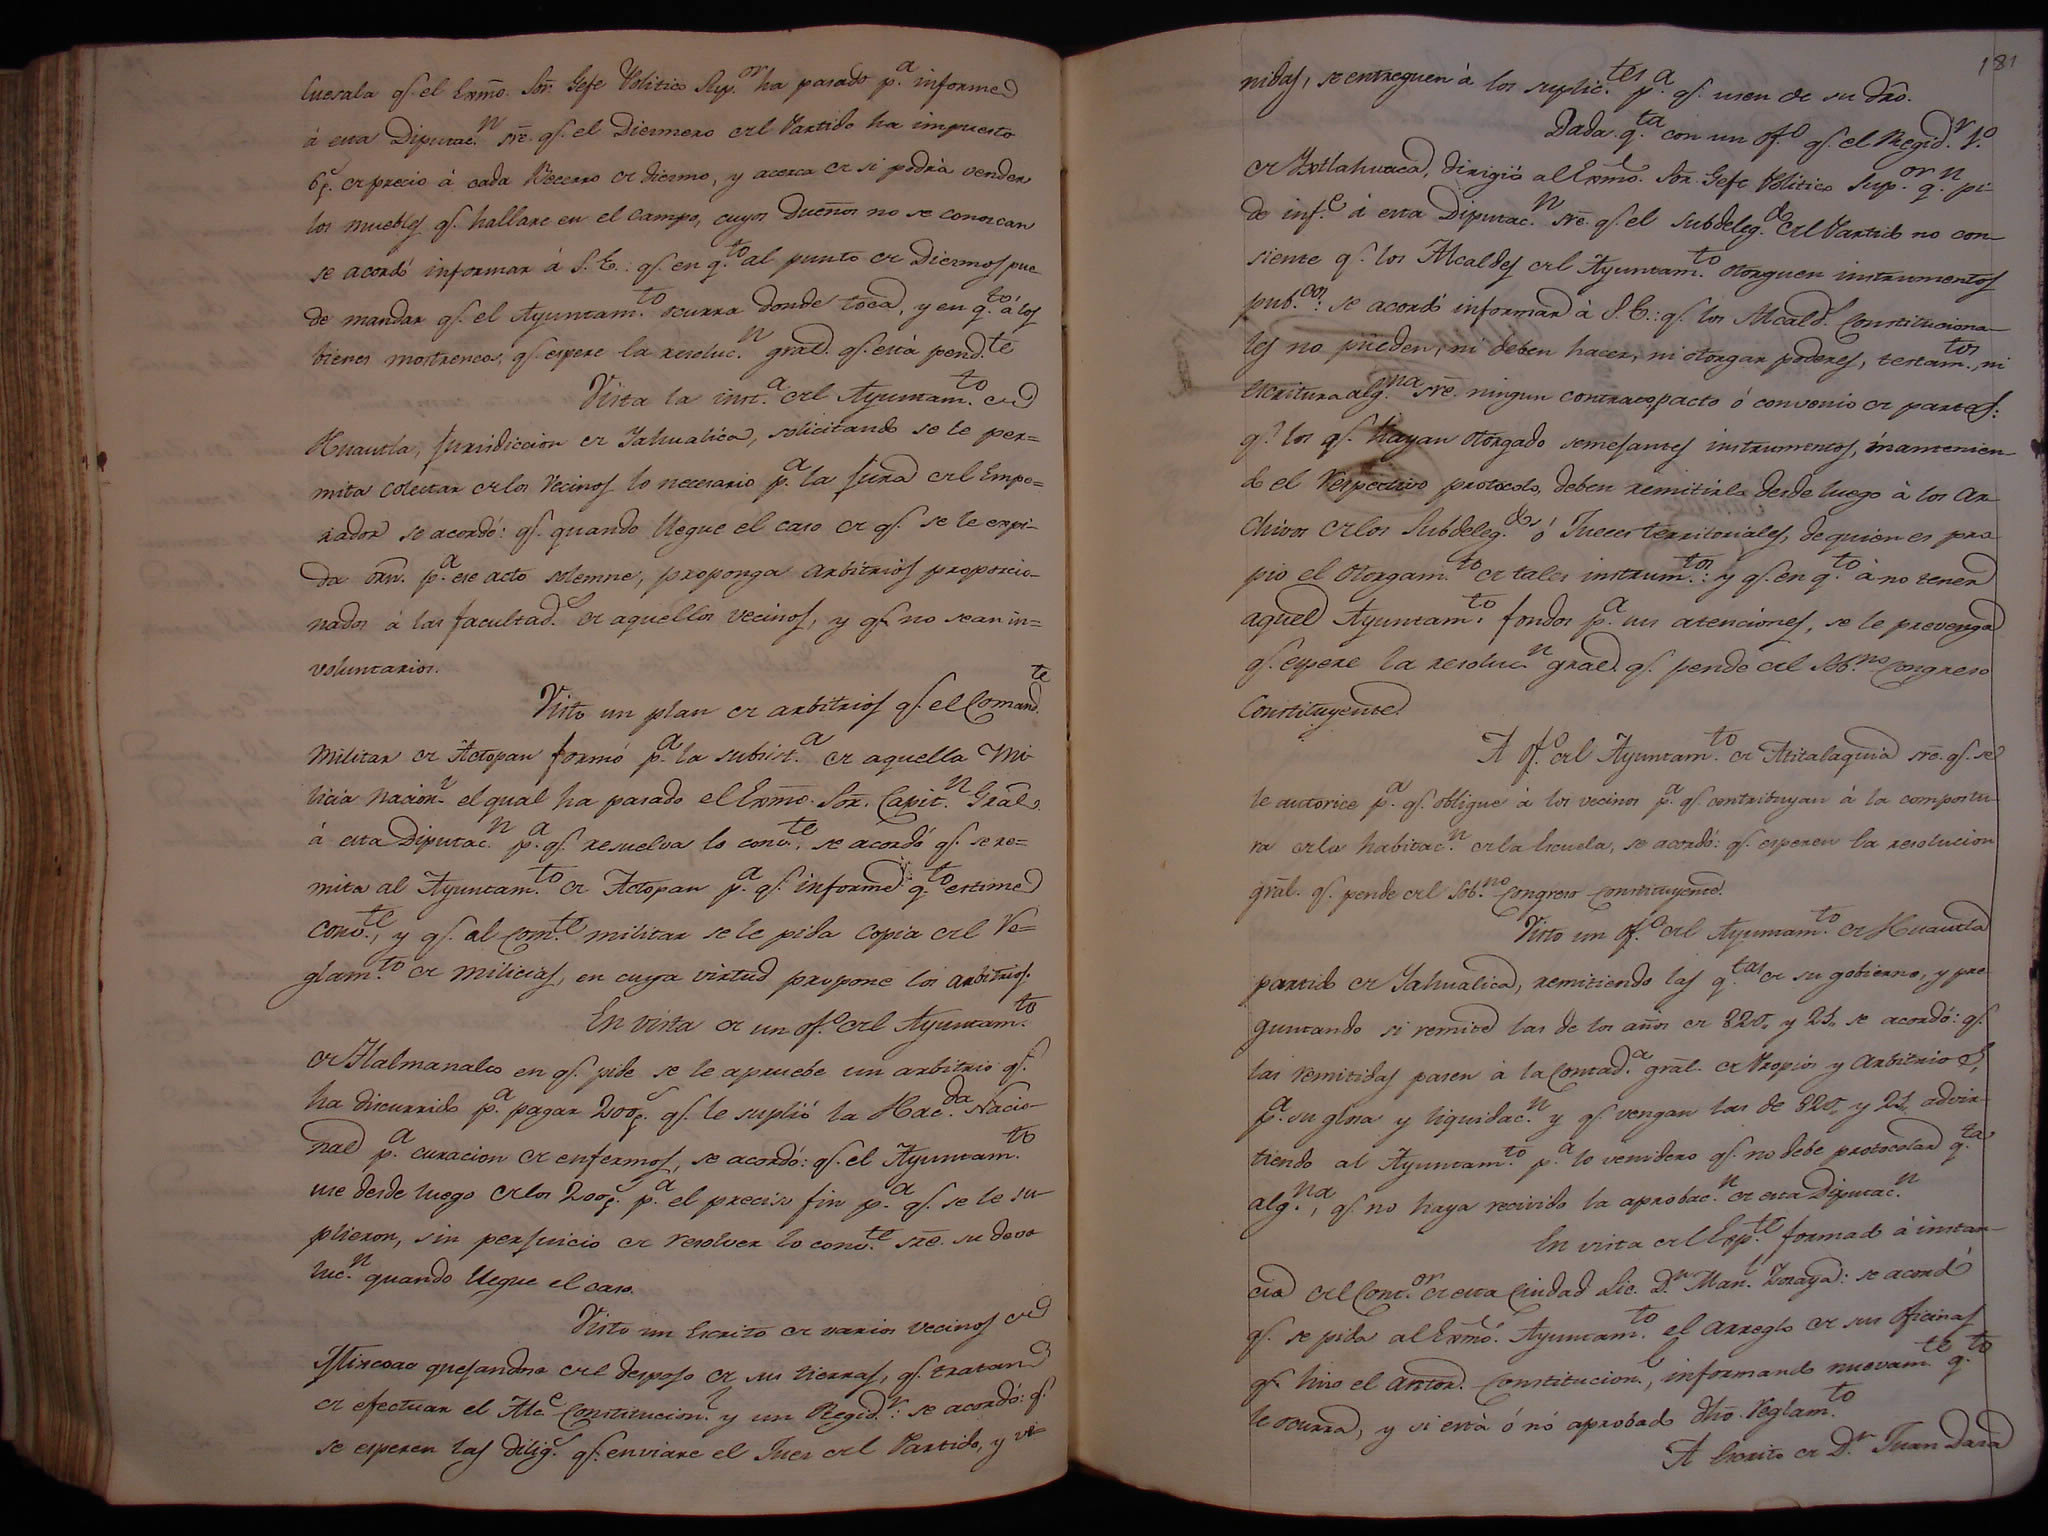 luesala q.e el Exmo. Sor. Gefe Politico Sup.or ha pasado p.a informe
á esta Diputac.n sre. q.e el Diezmero del Partido ha impuesto
6p.s de precio á cada Becerro de diezmo, y acerca de si podrá vender
los muebles q.e hallare en el campo, cuyos dueños no se conoscan
se acordó informar á S.E.: q.e en q.to al punto de Diezmos pue
de mandar q.e el Ayuntam.to ocurra donde toca, y en q.to á los
bienes mostrencos, q.e espere la resoluc.n gral. q.e está pend.te
Vista la inst.a del Ayuntam.to de
Huautla, jurisdiccion de Yahualica, solicitando se le per=
mita colectar de los vecinos lo necesario p.a la jura del Empe=
rador se acordó: q.e quando llegue el caso de q.e se le expi-
da orn. p.a ese acto solemne, proponga arbitrios proporcio-
nados á las facultad.s de aquellos vecinos, y q.e no sean in=
voluntarios.
Visto un plan de arbitrios q.e el Comand.te
Militar de Actopan formó p.a la subsist.a de aquella Mi
licia Nacion.l el qual ha pasado el Exmo. Sor. Capit.n Gral.
á esta Diputac.n p.a q.e resuelva lo conv.te, se acordó q.e se re=
mita al Ayuntam.to de Actopan p.a q.e informe q.to estime
conv.te, y q.e al Com.te militar se le pida copia del Re=
glam.to de milicias, en cuya virtud propone los arbitrios.
En vista de un of.o del Ayuntam.to
de Tlalmanalco en q.e pide se le apruebe un arbitrio q.e
ha discurrido p.a pagar 200p.s q.e le suplió la Hac.da Nacio-
nal p.a curacion de enfermos, se acordó: q.e el Ayuntam.to
use desde luego de los 200p.s p.a el preciso fin p.a q.e se le su-
plieron, sin perjuicio de resolver lo conv.te sre. su devo
luc.n quando llegue el caso.
Visto un Escrito de varios vecinos de
Mixcoac quejandose del despojo de sus tierras, q.e tratan
de efectuar el Alc.e Constitucion.l y un Regid.r: se acordó: q.e
se esperen las dilig.s q.e enviare el Juez del Partido, y ve-
181
nidas, se entreguen á los suplic.tes p.a q.e usen de su dro.
Dada q.ta con un of.o q.e el Regid.r 1.o
de Yxtlahuaca, dirigió al Exmo. Sor. Gefe Politico Sup.or q.n pi-
de inf.e á esta Diputac.n sre. q.e el subdeleg.do del Partido no con-
siente q.e los Alcaldes del Ayuntam.to otorguen instrumentos
pub.cos: se acordó informar á S.E.: q.e los Alcald.s Constituciona-
les no pueden, ni deben hacer, ni otorgar poderes, testam.tos, ni
escritura alg.na sre. ningun contrato, pacto ó convenio de partes:
q.e los q.e hayan otorgado semejantes instrumentos, mantenien-
do el respectivo protocolo, deben remitirlo desde luego á los Ar-
chivos de los Subdeleg.dos ó Jueces territoriales, de quien es pro
pio el otorgam.to de tales instrum.tos: y q.e en q.to á no tener
aquel Ayuntam.to fondos p.a sus atenciones, se le prevenga
q.e espere la resoluc.n gral. q.e pende del Sob.no Congreso
Constituyente.
A of.o del Ayuntam.to de Atitalaquia sre. q.e se
le autorice p.a q.e obligue á los vecinos p.a q.e contribuyan á la compostu-
ra de la habitac.n de la Escuela, se acordó: q.e esperen la resolucion
gral. q.e pende del Sob.no Congreso Constituyente.
Visto un of.o del Ayuntam.to de Huautla
partido de Yahualica, remitiendo las q.tas de su gobierno, y pre
guntando si remite las de los años de 820. y 21. se acordó: q.e
las remitidas pasen á la Contad.a gral. de Propios y Arbitrios,
p.a su glosa y liquidac.n y q.e vengan las de 820. y 21. advir-
tiendo al Ayuntam.to p.a lo venidero q.e no debe protocolar q.ta
alg.na, q.e no haya recivido la aprobac.n de esta Diputac.n
En vista del Exp.te formado á instan-
cia del Cont.or de esta Ciudad Lic. D.n Man.l Zozaya: se acordó
q.e se pida al Exmo. Ayuntam.to el arreglo de sus oficinas
q.e hizo el anter.r Constitucion.l, informando nuevam.te q.to
le ocurra, y si está ó nó aprobado dho. Reglam.to
A Escrito de D.n Juan Daza